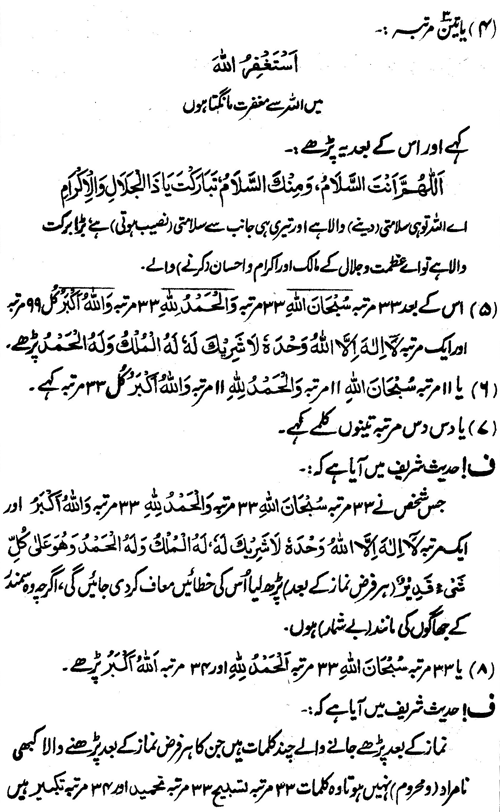 (۴) یا تین۳ مرتبہ :-
اَسْتَغْفِرُ اللّٰہَ
میں اللہ سے مغفرت مانگتا ہوں
کہے اور اس کے بعد یہ پڑھے :-
اَللّٰہُمَّ اَنْتَ السَّلَامُ، وَمِنْكَ السَّلَامُ تَبَارَكْتَ يَا ذَا الْجَلَالِ وَالْاِكْرَامِ
اے اللہ تو ہی سلامتی (دینے) والا ہے اور تیری ہی جانب سے سلامتی (نصیب ہوتی) ہے، بڑا برکت
والا ہے تو اے عظمت و جلال کے مالک اور اکرام و احسان (کرنے) والے.
(۵) اس کے بعد ۳۳ مرتبہ سُبْحَانَ اللّٰہِ ۳۳ مرتبہ وَالْحَمْدُ لِلّٰہِ ۳۳ مرتبہ وَاللّٰہُ اَكْبَرُ کُل ۹۹ مرتبہ
اور ایک مرتبہ لَا اِلٰہَ اِلَّا اللّٰہُ وَحْدَہٗ لَا شَرِيْكَ لَہٗ، لَہُ الْمُلْكُ وَلَہُ الْحَمْدُ پڑھے.
(۶) یا ۱۱ مرتبہ سُبْحَانَ اللّٰہِ ۱۱ مرتبہ وَالْحَمْدُ لِلّٰہِ ۱۱ مرتبہ وَاللّٰہُ اَكْبَرُ کُل ۳۳ مرتبہ کہے.
(۷) یا دس دس مرتبہ تینوں کلمے کہے.
ف! حدیث شریف میں آیا ہے کہ :-
جس شخص نے ۳۳ مرتبہ سُبْحَانَ اللّٰہِ ۳۳ مرتبہ وَالْحَمْدُ لِلّٰہِ ۳۳ مرتبہ وَاللّٰہُ اَكْبَرُ اور
ایک مرتبہ لَا اِلٰہَ اِلَّا اللّٰہُ وَحْدَہٗ لَا شَرِيْكَ لَہٗ، لَہُ الْمُلْكُ وَلَہُ الْحَمْدُ وَهُوَ عَلٰى كُلِّ
شَیْءٍ قَدِيْرٌ (ہر فرض نماز کے بعد) پڑھ لیا اُس کی خطائیں معاف کر دی جائیں گی، اگرچہ وہ سمندر
کے جھاگوں کی مانند (بے شمار) ہوں.
(۸) یا ۳۳ مرتبہ سُبْحَانَ اللّٰہِ ۳۳ مرتبہ اَلْحَمْدُ لِلّٰہِ اور ۳۴ مرتبہ اَللّٰہُ اَكْبَرُ پڑھے.
ف! حدیث شریف میں آیا ہے کہ :-
نماز کے بعد پڑھے جانے والے چند کلمات ہیں جن کا ہر فرض نماز کے بعد پڑھنے والا کبھی
نامراد (و محروم) نہیں ہوتا وہ کلمات ۳۳ مرتبہ تسبیح ۳۳ مرتبہ تحمید اور ۳۴ مرتبہ تکبیر ہیں